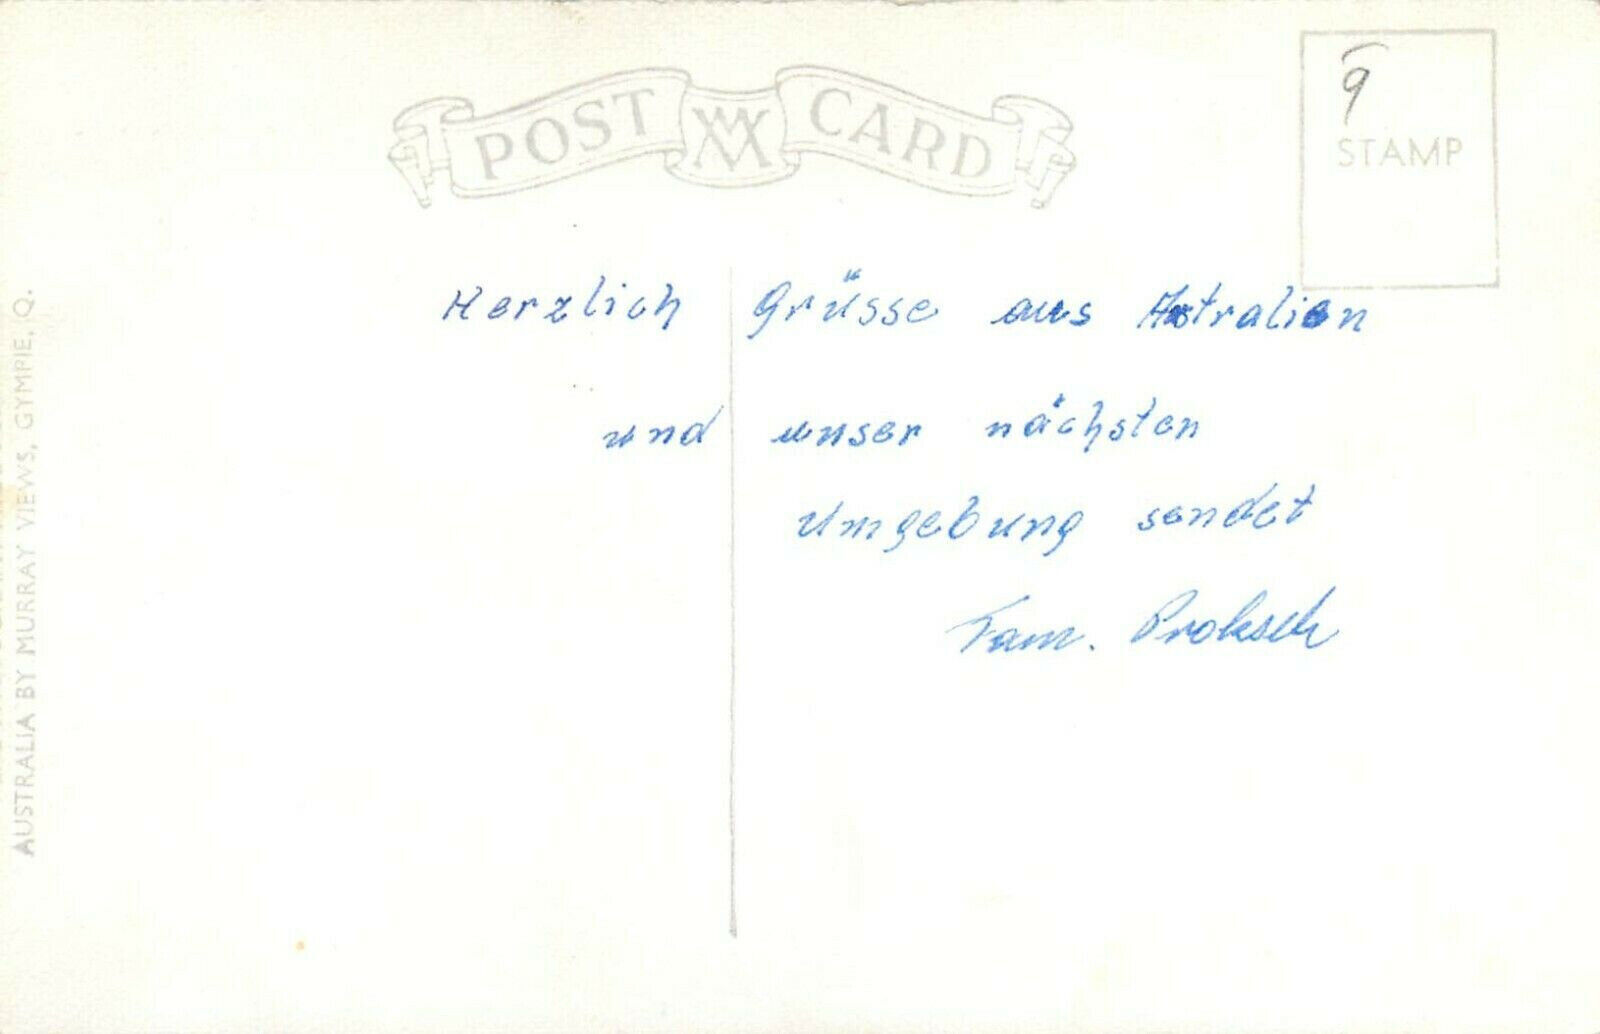 POST CARD
9
STAMP
Herzlich Grüsse aus Astralien
und unser nächsten
Umgebung sendet
Fam. Proksch
AUSTRALIA BY MURRAY VIEWS, GYMPIE, Q.